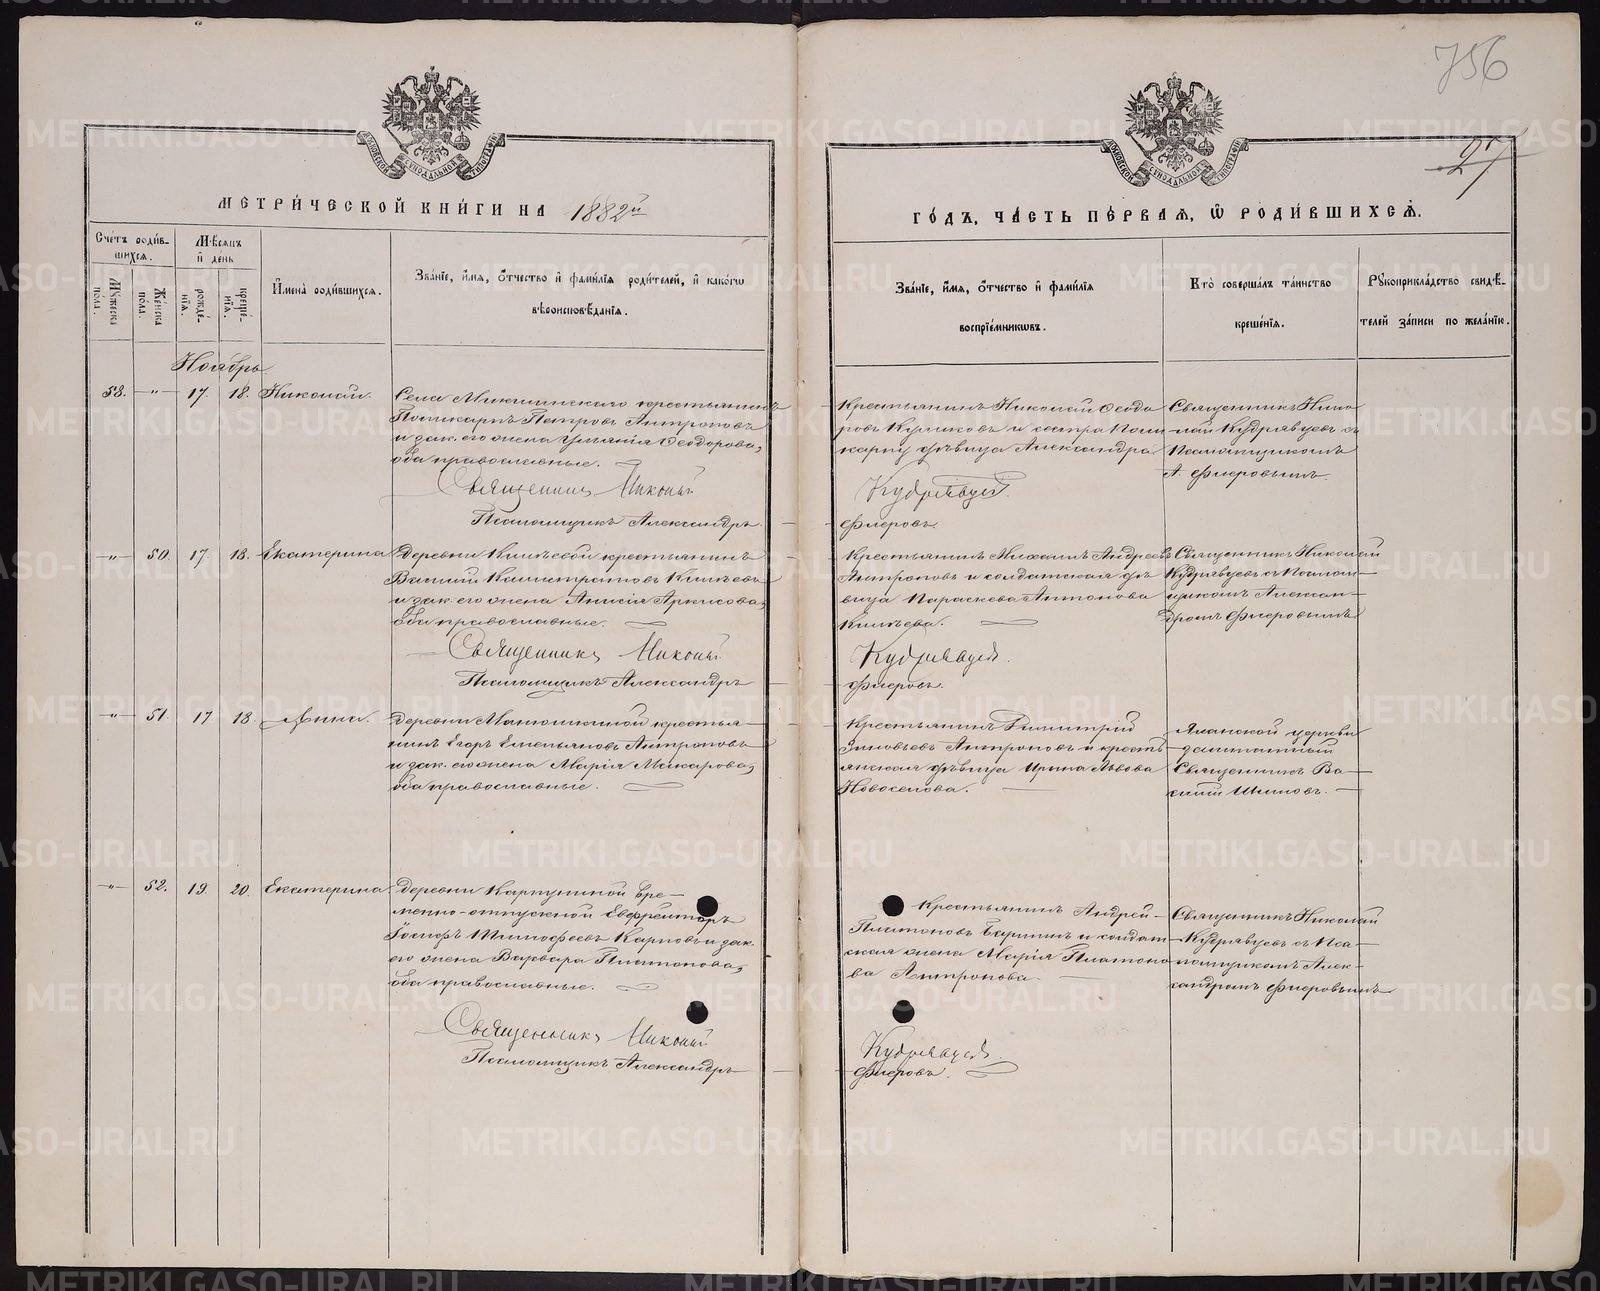 756
27
МЕТРИ́ЧЕСКОЙ КНИ́ГИ НА 1882й
ГО́ДЪ, ЧА́СТЬ ПЕ́РВАѦ, Ѿ РОДИ́ВШИХСѦ.
Сче́тъ роди́в-
шихсѧ.
Мѣсѧцъ
и҆ де́нь
Мꙋ́жеска по́ла.
Же́нска по́ла.
рожде́-
нїѧ.
креще́-
нїѧ.
И҆мена̀ роди́вшихсѧ.
Зва́нїе, и҆́мѧ, ѻ҆́тчество и҆ фами́лїѧ роди́телей, и҆ како́гѡ
вѣроисповѣ́данїѧ.
Зва́нїе, и҆́мѧ, ѻ҆́тчество и҆ фами́лїѧ
воспрїе́мникѡвъ.
Кто̀ соверша́лъ та́инство
креще́нїѧ.
Рꙋкоприкла́дство свидѣ́-
телей за́писи по жела́нїю.
Ноябрь
58. -"- 17. 18. Николай.
Села Микшинскаго крестьянинъ
Поликарпъ Петровъ Антроповъ
и зак. его жена Ульянія Ѳеодорова,
оба православные.
Священникъ Николай
Псаломщикъ Александръ
Крестьянинъ Николай Ѳеодо
ровъ Куликовъ и сестра Поли
карпу дѣвица Александра
Кудрявцевъ.
Флеровъ.
Священникъ Нико-
лай Кудрявцевъ съ
Псаломщикомъ
А. Флеровымъ.
-"- 50. 17. 18. Екатерина
Деревни Кишѣевой крестьянинъ
Василій Калистратовъ Кишѣевъ
и зак. его жена Анисія
оба православные.
Священникъ Николай
Псаломщикъ Александръ
Крестьянинъ Михаилъ Андреевъ
Антроповъ и солдатская дѣ
вица Параскева Антонова
Кишѣева.
Кудрявцевъ.
Флеровъ.
Священникъ Николай
Кудрявцевъ съ Псалом-
щикомъ Алексан-
дромъ Флеровымъ
-"- 51. 17 18. Анна.
Деревни крестья-
нинъ Егоръ Емельяновъ Антроповъ
и зак. его жена Марія Макарова,
оба православные.
Крестьянинъ Димитрій
Зиновьевъ Антроповъ и кресть
янская дѣвица Ирина Львова
Новоселова.
Яланской церкви
заштатный
Священникъ Ва-
силій Шишовъ.
-"- 52. 19. 20. Екатерина
Деревни Карпушиной вре-
менно-отпускной Евфрейторъ
Іосифъ Тимофеевъ Карповъ и зак.
его жена Варвара Платонова,
оба православные.
Священникъ Николай
Псаломщикъ Александръ
Крестьянинъ Андрей
Платоновъ и солдат
ская жена Марія Платоно
ва Антропова.
Кудрявцевъ.
Флеровъ.
Священникъ Николай
Кудрявцевъ съ Пса-
ломщикомъ Алек-
сандромъ Флеровымъ
METRIKI.GASO-URAL.RU